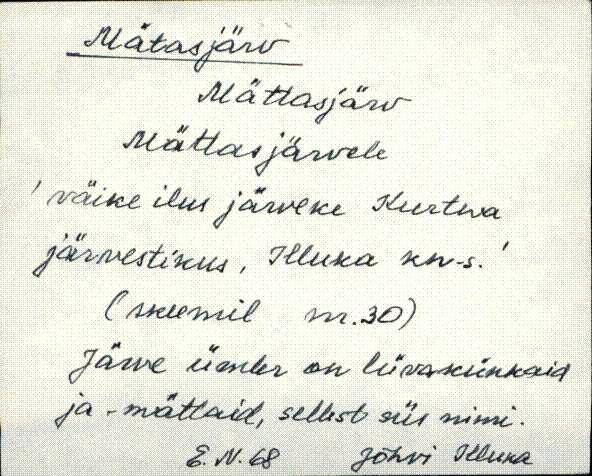 Mätasjärv
Mättasjärv
Mättasjärvele
'väike ilus järveke Kurtna
järvestikus, Illuka kn-s.'
(skeemil nr. 30)
Järve ümber on liivakünkaid
ja -mättaid, sellest siis nimi.
E. N. 68 Jõhvi Illuka